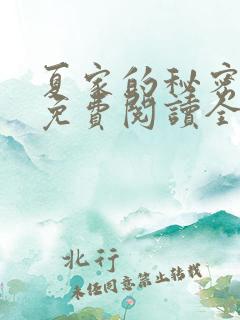 夏家的秘密
免費閱讀全
北行
未经同意禁止转载